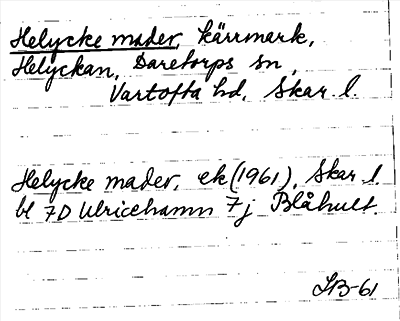 Helycke mader, kärrmark,
Helyckan, Daretorps sn,
Vartofta hd, Skar. l.
Helycke mader, ek (1961), Skar. l.
bl 7D Ulricehamn 7j Blåhult.
SB-61